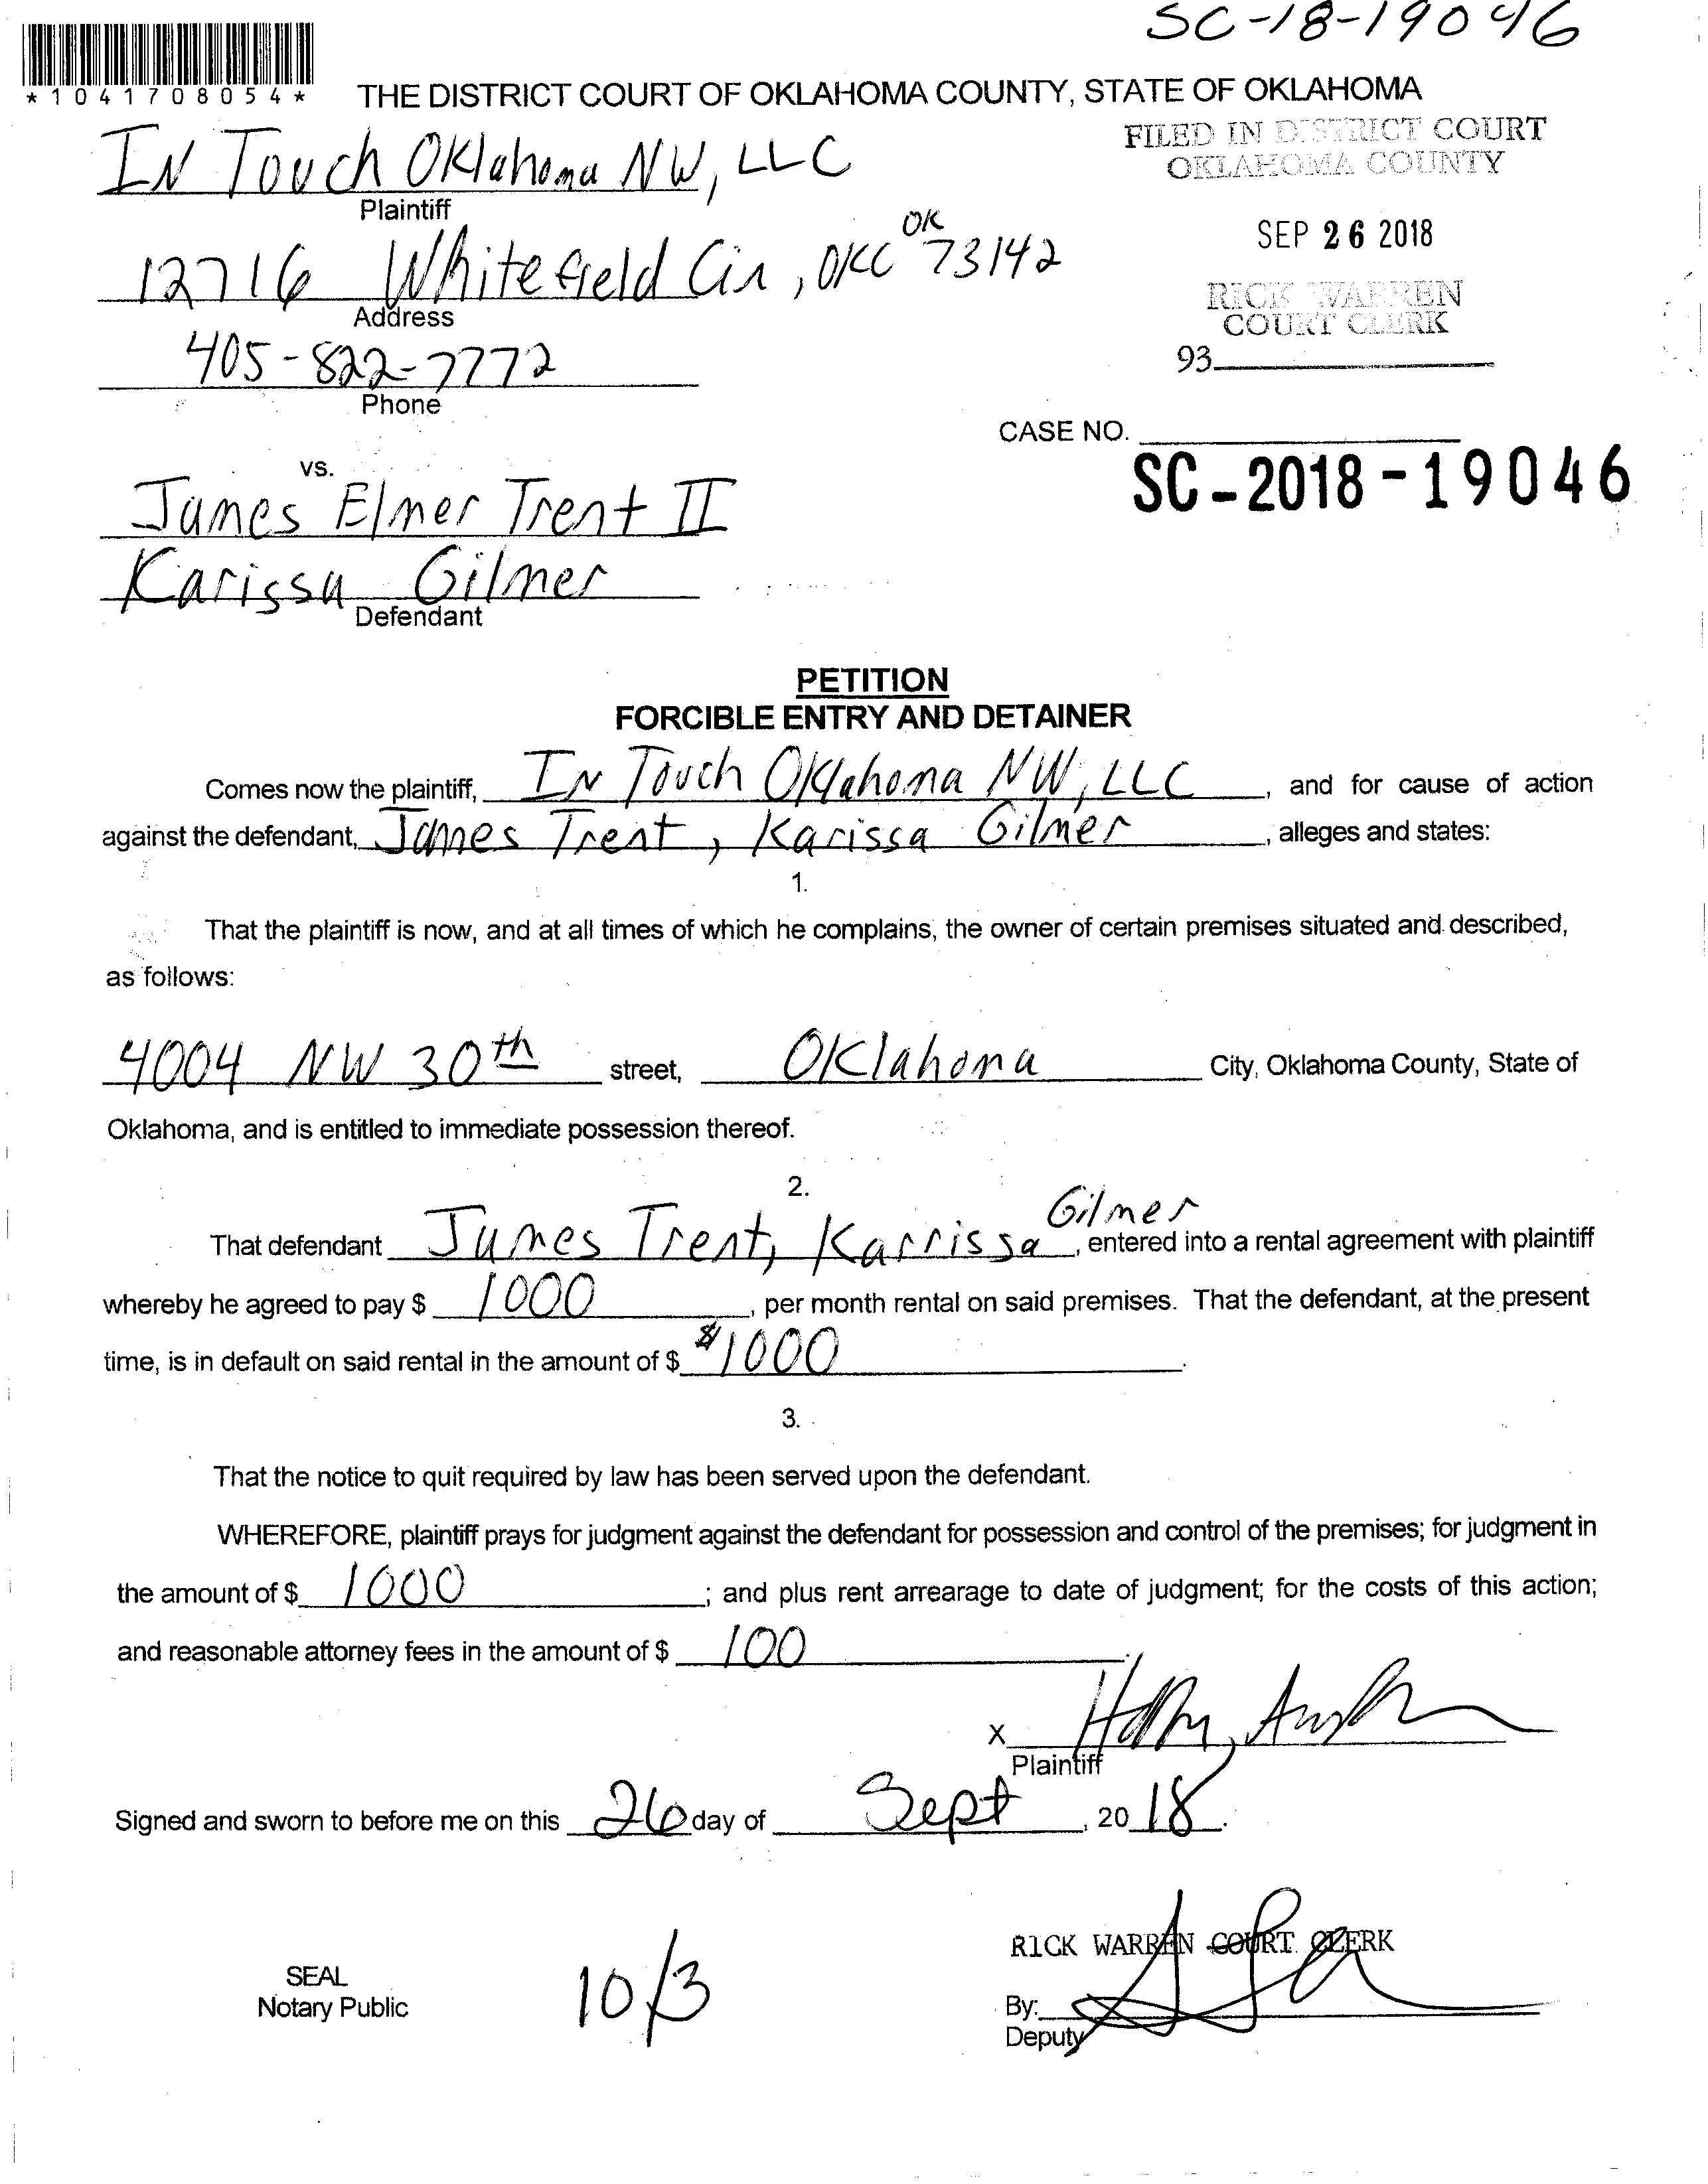 SC-18-19046
*1041708054*
THE DISTRICT COURT OF OKLAHOMA COUNTY, STATE OF OKLAHOMA
FILED IN DISTRICT COURT
OKLAHOMA COUNTY
IN Touch Oklahoma NW, LLC
Plaintiff
SEP 26 2018
12716 Whitefield Cir, OKC OK 73142
Address
RICK WARREN
COURT CLERK
93
405-822-7772
Phone
CASE NO.
SC-2018-19046
vs.
James Elmer Trent II
Karissa Gilmer
Defendant
PETITION
FORCIBLE ENTRY AND DETAINER
Comes now the plaintiff, IN Touch Oklahoma NW, LLC, and for cause of action
against the defendant, James Trent, Karissa Gilmer, alleges and states:
1.
That the plaintiff is now, and at all times of which he complains, the owner of certain premises situated and described,
as follows:
4004 NW 30th street, Oklahoma City, Oklahoma County, State of
Oklahoma, and is entitled to immediate possession thereof.
2.
That defendant James Trent, Karrissa Gilmer, entered into a rental agreement with plaintiff
whereby he agreed to pay $ 1000, per month rental on said premises. That the defendant, at the present
time, is in default on said rental in the amount of $ $1000.
3.
That the notice to quit required by law has been served upon the defendant.
WHEREFORE, plaintiff prays for judgment against the defendant for possession and control of the premises; for judgment in
the amount of $ 1000; and plus rent arrearage to date of judgment; for the costs of this action;
and reasonable attorney fees in the amount of $ 100.
X
Plaintiff
Signed and sworn to before me on this 26 day of Sept, 2018.
RICK WARREN COURT CLERK
SEAL
Notary Public
10/3
By:
Deputy